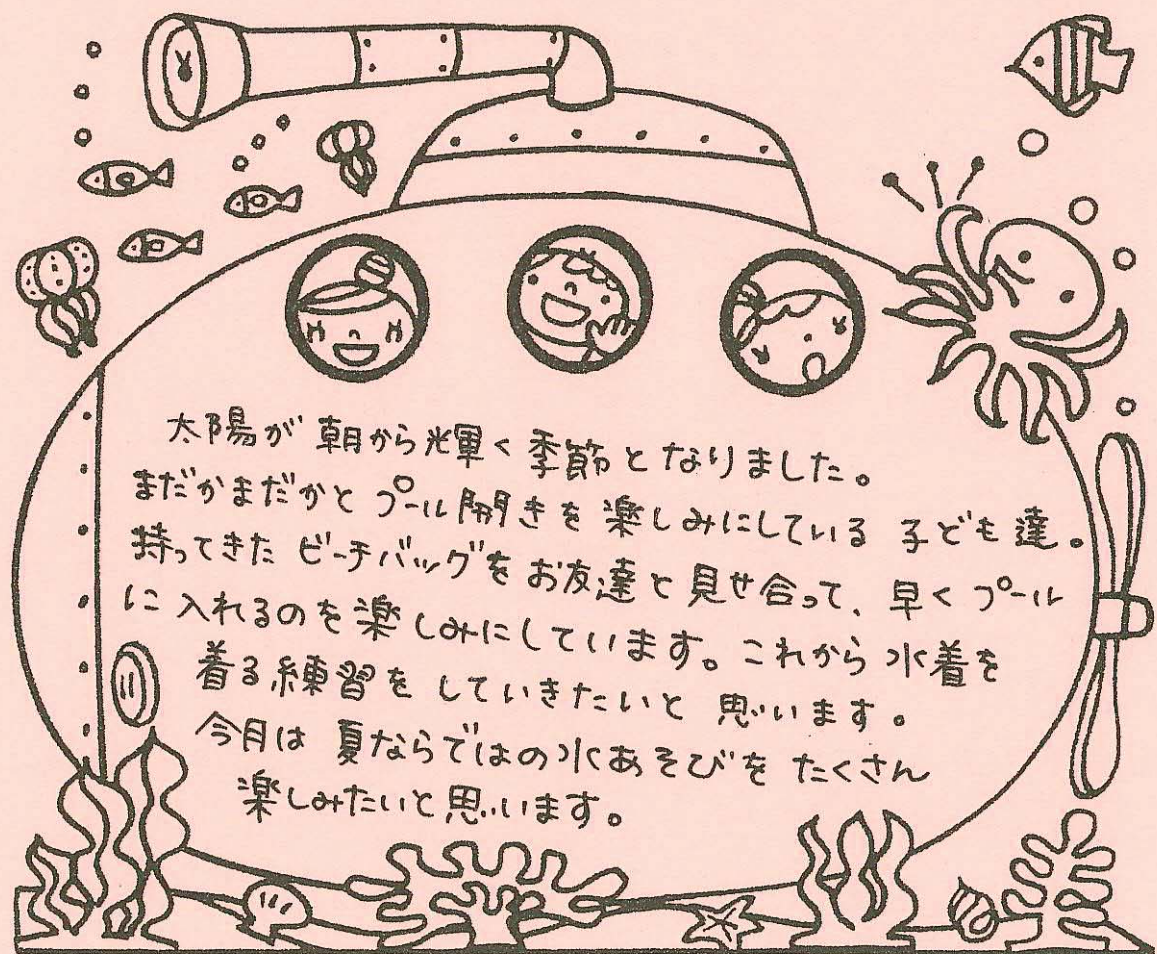 太陽が朝から輝く季節となりました。
まだかまだかとプール開きを楽しみにしている子ども達。
持ってきたビーチバッグをお友達と見せ合って、早くプール
に入れるのを楽しみにしています。これから水着を
着る練習をしていきたいと思います。
今月は夏ならではの水あそびをたくさん
楽しみたいと思います。